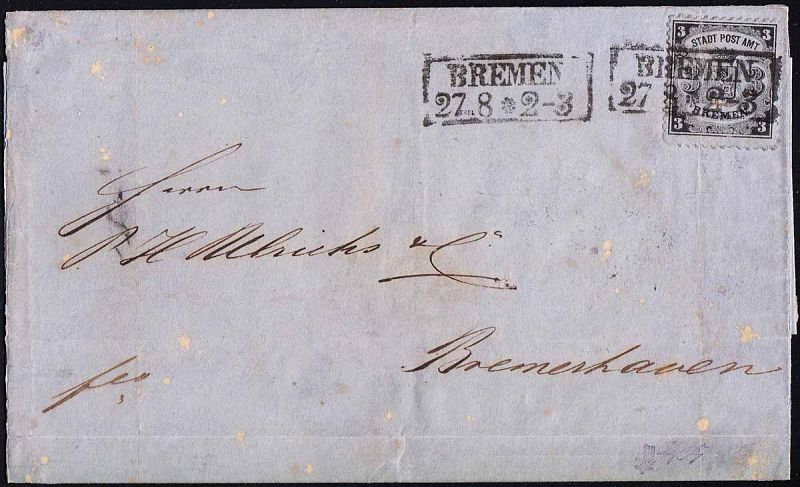 BREMEN
27 8 * 2-3
BREMEN
27 8 * 2-3
3 3
STADT POST AMT
BREMEN
3 3
Herrn
P. H. Ulrichs & Co
Bremerhaven
fco